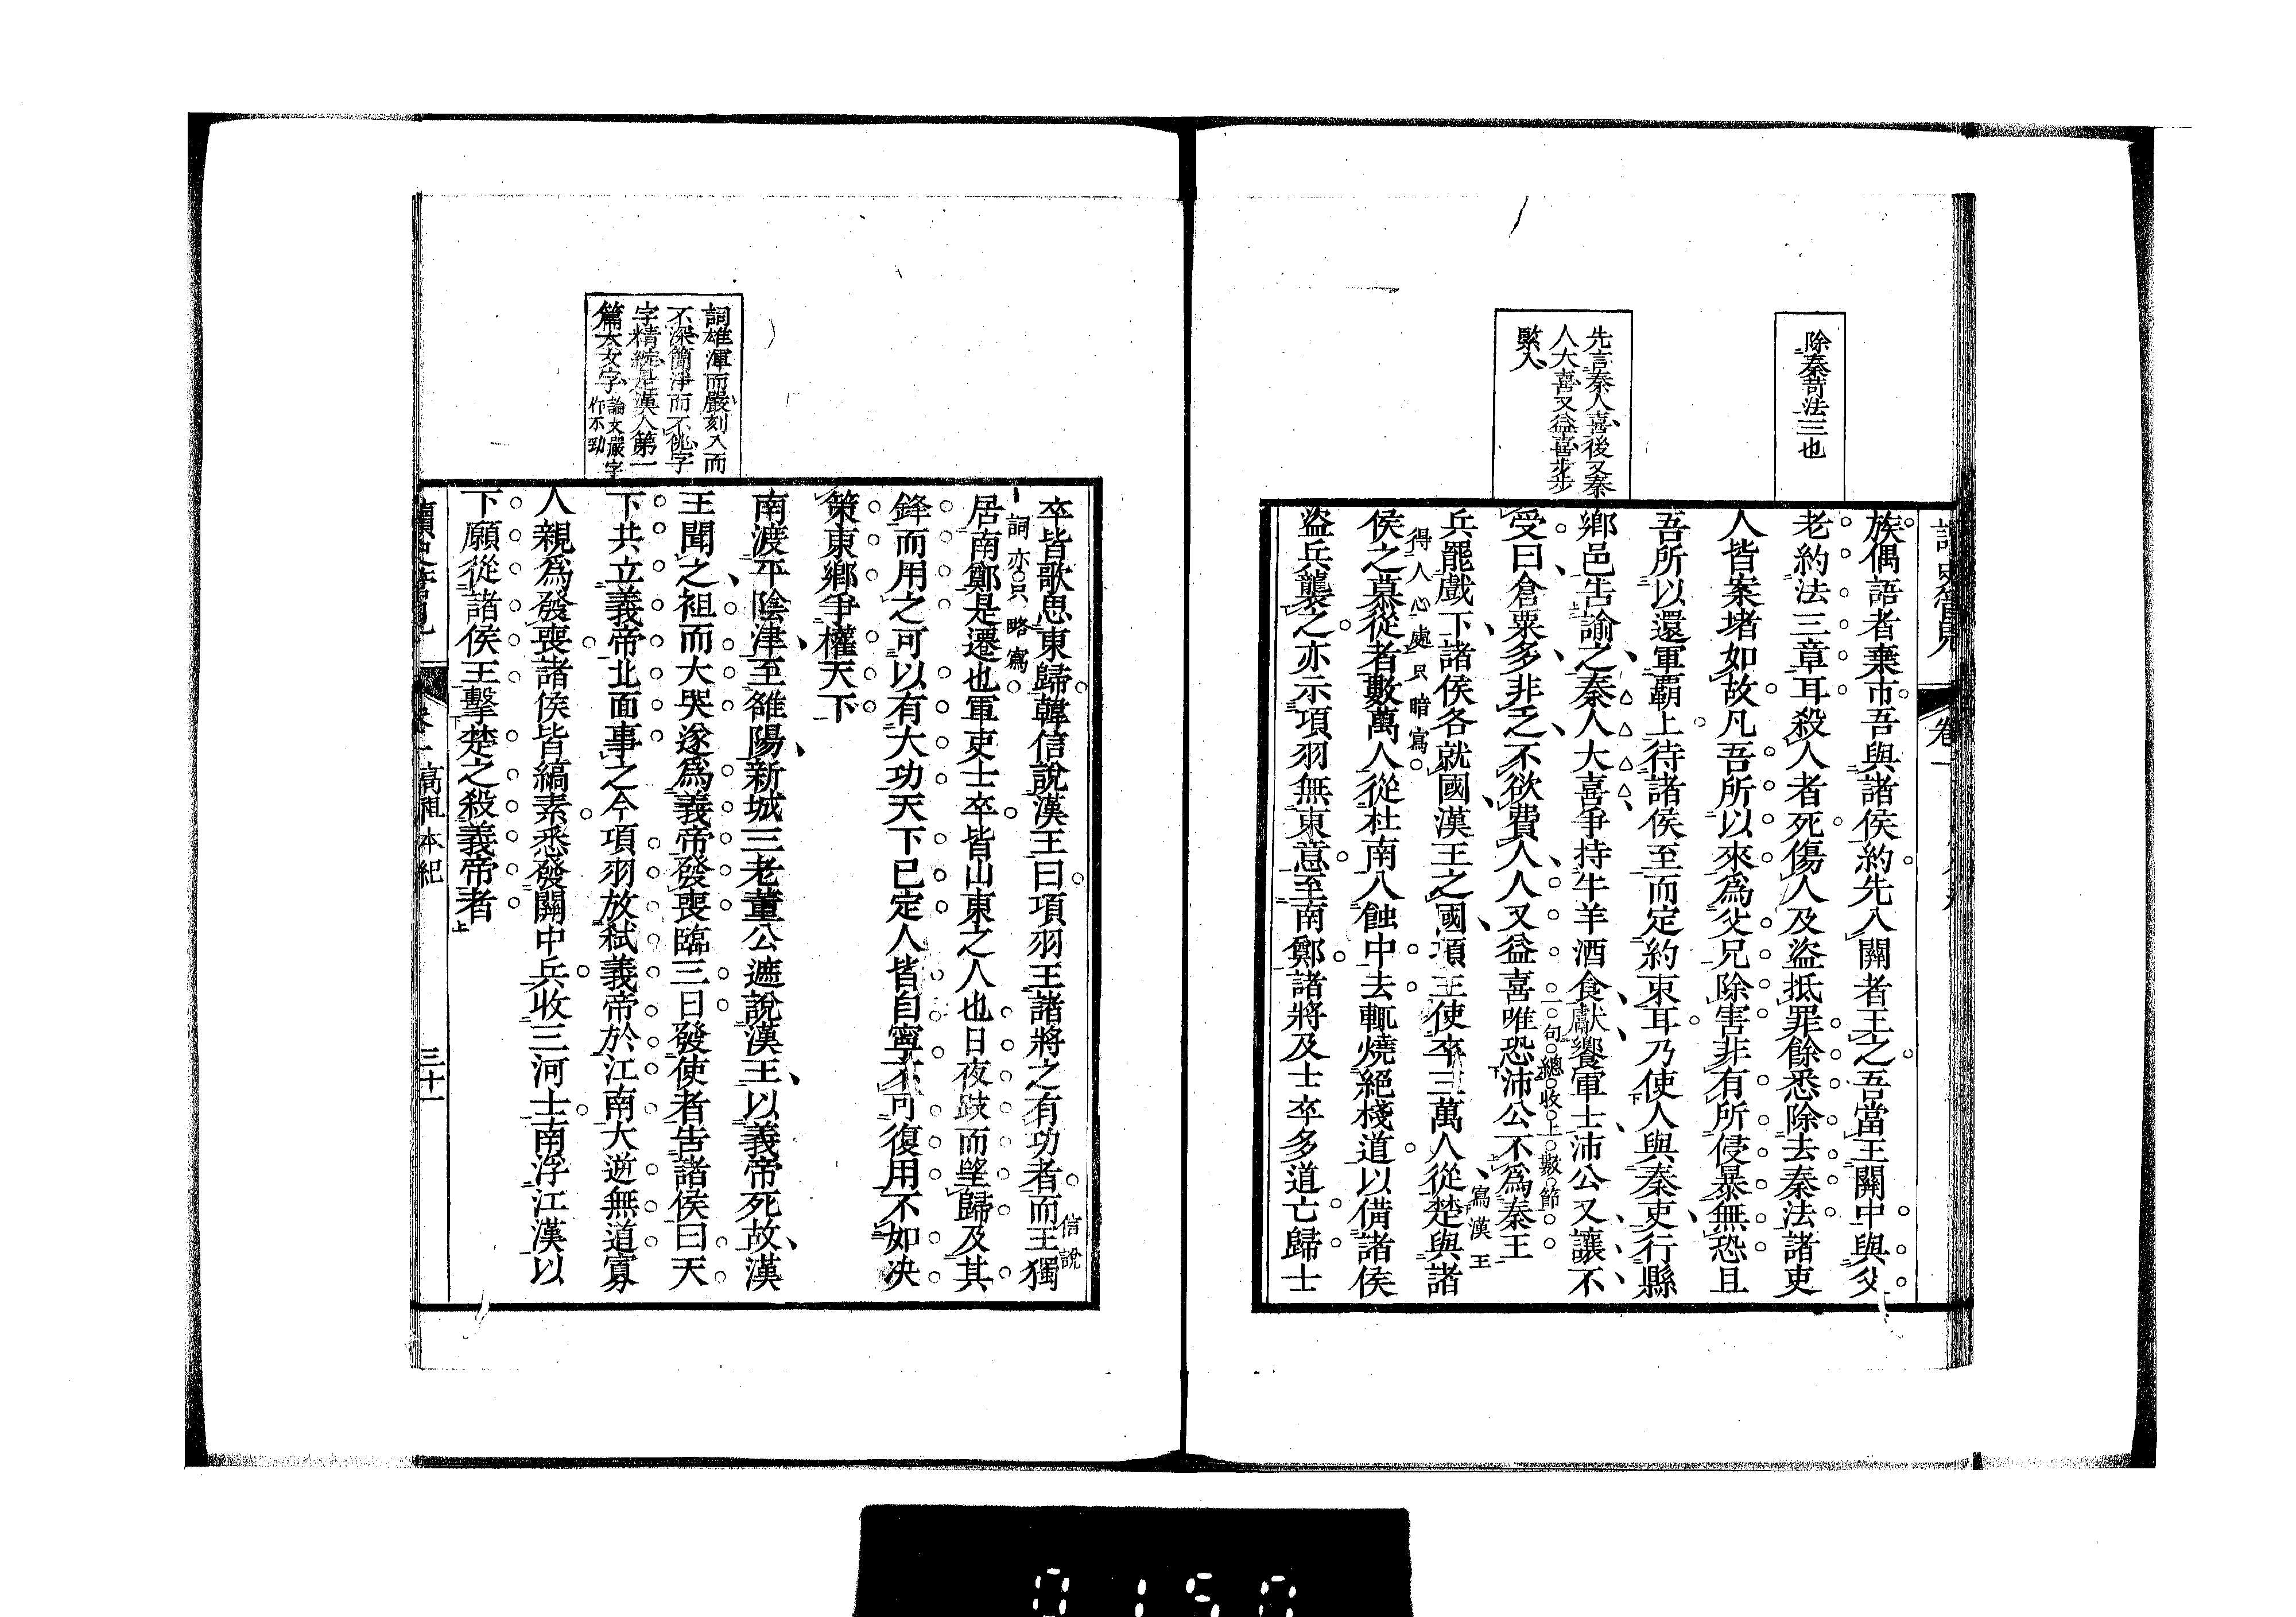 讀史管見
卷一
除秦苛法三也
先言秦人喜後又秦
人大喜又益喜步步
緊入
族偶語者棄市吾與諸侯約先入關者王之吾當王關中與父
老約法三章耳殺人者死傷人及盜抵罪餘悉除去秦法諸吏
人皆案堵如故凡吾所以來為父兄除害非有所侵暴無恐且
吾所以還軍霸上待諸侯至而定約束耳乃使人與秦吏行縣
鄉邑告諭之秦人大喜爭持牛羊酒食獻饗軍士沛公又讓不
受曰倉粟多非乏不欲費人人又益喜唯恐沛公不為秦王
一句總收上數節
兵罷戲下諸侯各就國漢王之國項王使卒三萬人從楚與諸
寫漢王
得人心處只暗寫
侯之慕從者數萬人從杜南入蝕中去輒燒絕棧道以備諸侯
盜兵襲之亦示項羽無東意至南鄭諸將及士卒多道亡歸士
詞雄渾而嚴刻入而
不深簡淨而不佻字
字精綻是漢人第一
篇大文字
論文嚴字
作不勁
卒皆歌思東歸韓信說漢王曰項羽王諸將之有功者而王獨
信說
詞亦只略寫
居南鄭是遷也軍吏士卒皆山東之人也日夜跂而望歸及其
鋒而用之可以有大功天下已定人皆自寧不可復用不如决
策東鄉爭權天下
南渡平陰津至雒陽新城三老董公遮說漢王以義帝死故漢
王聞之袒而大哭遂為義帝發喪臨三日發使者告諸侯曰天
下共立義帝北面事之今項羽放弒義帝於江南大逆無道寡
人親為發喪諸侯皆縞素悉發關中兵收三河士南浮江漢以
下願從諸侯王擊楚之殺義帝者
高祖本紀
三十一
0150